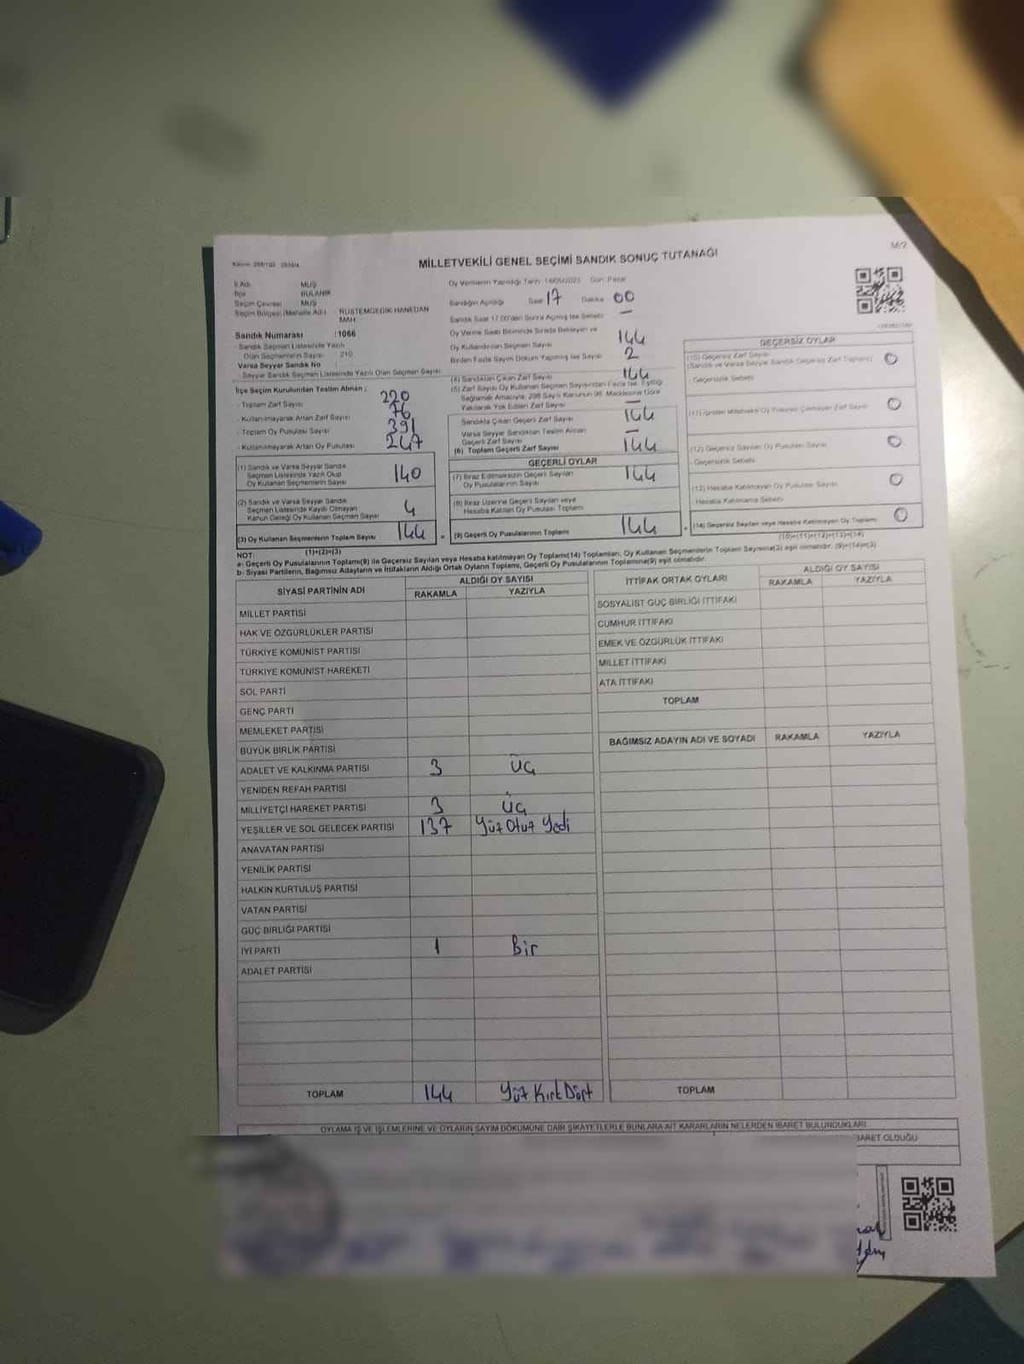 MİLLETVEKİLİ GENEL SEÇİMİ SANDIK SONUÇ TUTANAĞI
M/2
İl Adı MUŞ
İlçe BULANIK
Seçim Çevresi MUŞ
Seçim Bölgesi (Mahalle Adı) RÜSTEMGEDİK HANEDAN MAH
Sandık Numarası : 1066
Sandık Seçmen Listesinde Yazılı
Olan Seçmenlerin Sayısı 210
Varsa Seyyar Sandık No
Seyyar Sandık Seçmen Listesinde Yazılı Olan Seçmen Sayısı
Oy Vermenin Yapıldığı Tarih: 14/05/2023 Gün: Pazar
Sandığın Açıldığı Saat 17 Dakika 00
Sandık Saat 17.00'den Sonra Açılmış İse Sebebi
Oy Verme Saati Bitiminde Sırada Bekleyen ve
Oy Kullandırılan Seçmen Sayısı 144
Birden Fazla Sayım Döküm Yapılmış İse Sayısı 2
İlçe Seçim Kurulundan Teslim Alınan :
- Toplam Zarf Sayısı 220
- Kullanılmayarak Artan Zarf Sayısı 76
- Toplam Oy Pusulası Sayısı 391
- Kullanılmayarak Artan Oy Pusulası 247
(1) Sandık ve Varsa Seyyar Sandık
Seçmen Listesinde Yazılı Olup
Oy Kullanan Seçmenlerin Sayısı 140
(2) Sandık ve Varsa Seyyar Sandık
Seçmen Listesinde Kaydı Olmayan
Kanun Gereği Oy Kullanan Seçmen Sayısı 4
(3) Oy Kullanan Seçmenlerin Toplam Sayısı 144
(1)+(2)=(3)
(4) Sandıktan Çıkan Zarf Sayısı 144
(5) Zarf Sayısı Oy Kullanan Seçmen Sayısından Fazla İse, Eşitliği
Sağlamak Amacıyla, 298 Sayılı Kanunun 98. Maddesine Göre
Yakılarak Yok Edilen Zarf Sayısı —
Sandıkta Çıkan Geçerli Zarf Sayısı 144
Varsa Seyyar Sandıktan Teslim Alınan
Geçerli Zarf Sayısı —
(6) Toplam Geçerli Zarf Sayısı 144
GEÇERLİ OYLAR
(7) İtiraz Edilmeksizin Geçerli Sayılan
Oy Pusulalarının Sayısı 144
(8) İtiraz Üzerine Geçerli Sayılan veya
Hesaba Katılan Oy Pusulası Toplamı
(9) Geçerli Oy Pusulalarının Toplamı 144
GEÇERSİZ OYLAR
(10) Geçersiz Zarf Sayısı 0
(Sandık ve Varsa Seyyar Sandık Geçersiz Zarf Toplamı)
- Geçersizlik Sebebi
0
(12) Geçersiz Sayılan Oy Pusulası Sayısı 0
- Geçersizlik Sebebi
(13) Hesaba Katılmayan Oy Pusulası Sayısı 0
Hesaba Katılmama Sebebi
(14) Geçersiz Sayılan veya Hesaba Katılmayan Oy Toplamı 0
(10)+(11)+(12)+(13)=(14)
NOT:
a- Geçerli Oy Pusulalarının Toplamı(9) ile Geçersiz Sayılan veya Hesaba katılmayan Oy Toplamı(14) Toplamları, Oy Kullanan Seçmenlerin Toplam Sayısına(3) eşit olmalıdır. (9)+(14)=(3)
b- Siyasi Partilerin, Bağımsız Adayların ve İttifakların Aldığı Ortak Oyların Toplamı, Geçerli Oy Pusulalarının Toplamına(9) eşit olmalıdır.
SİYASİ PARTİNİN ADI ALDIĞI OY SAYISI
RAKAMLA YAZIYLA
MİLLET PARTİSİ
HAK VE ÖZGÜRLÜKLER PARTİSİ
TÜRKİYE KOMÜNİST PARTİSİ
TÜRKİYE KOMÜNİST HAREKETİ
SOL PARTİ
GENÇ PARTİ
MEMLEKET PARTİSİ
BÜYÜK BİRLİK PARTİSİ
ADALET VE KALKINMA PARTİSİ 3 Üç
YENİDEN REFAH PARTİSİ
MİLLİYETÇİ HAREKET PARTİSİ 3 Üç
YEŞİLLER VE SOL GELECEK PARTİSİ 137 Yüz Otuz Yedi
ANAVATAN PARTİSİ
YENİLİK PARTİSİ
HALKIN KURTULUŞ PARTİSİ
VATAN PARTİSİ
GÜÇ BİRLİĞİ PARTİSİ
İYİ PARTİ 1 Bir
ADALET PARTİSİ
TOPLAM 144 Yüz Kırk Dört
İTTİFAK ORTAK OYLARI ALDIĞI OY SAYISI
RAKAMLA YAZIYLA
SOSYALİST GÜÇ BİRLİĞİ İTTİFAKI
CUMHUR İTTİFAKI
EMEK VE ÖZGÜRLÜK İTTİFAKI
MİLLET İTTİFAKI
ATA İTTİFAKI
TOPLAM
BAĞIMSIZ ADAYIN ADI VE SOYADI RAKAMLA YAZIYLA
TOPLAM
OYLAMA İŞ VE İŞLEMLERİNE VE OYLARIN SAYIM DÖKÜMÜNE DAİR ŞİKAYETLERLE BUNLARA AİT KARARLARIN NELERDEN İBARET BULUNDUKLARI
İBARET OLDUĞU